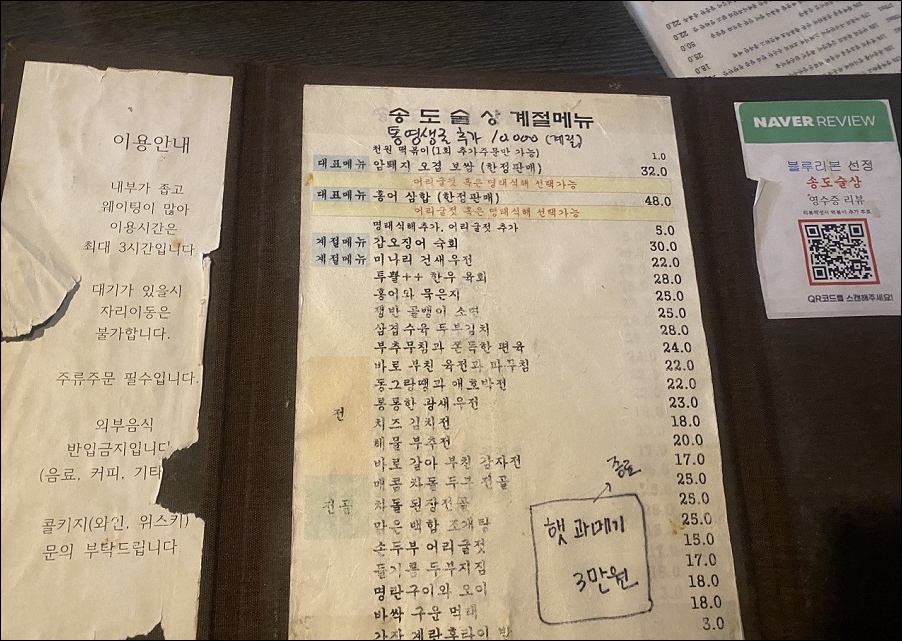 이용안내
내부가 좁고
웨이팅이 많아
이용시간은
최대 3시간입니다
대기가 있을시
자리이동은
불가합니다.
주류주문 필수입니다.
외부음식
반입금지입니
(음료, 커피, 기타
콜키지(와인, 위스키)
문의 부탁드립니다
송도술상 계절메뉴
통영생굴 추가 10,000 (계절)
천원 떡볶이(1회 추가주문만 가능) 1.0
대표메뉴 암퇘지 오겹 보쌈 (한정판매) 32.0
어리굴젓 혹은 명태식해 선택가능
대표메뉴 홍어 삼합 (한정판매) 48.0
어리굴젓 혹은 명태식해 선택가능
명태식해추가, 어리굴젓 추가 5.0
계절메뉴 갑오징어 숙회 30.0
계절메뉴 미나리 건새우전 22.0
투뿔++ 한우 육회 28.0
홍어와 묵은지 25.0
쟁반 골뱅이 소면 25.0
삼겹수육 두부김치 28.0
부추무침과 쫀득한 편육 24.0
바로 부친 육전과 파무침 22.0
동그랑땡과 애호박전 22.0
통통한 왕새우전 23.0
전
치즈 김치전 18.0
해물 부추전 20.0
바로 갈아 부친 감자전 17.0
매콤 차돌 두부 전골 25.0
전골
차돌 된장전골 25.0
맑은 백합 조개탕 25.0
손두부 어리굴젓 15.0
들기름 두부지짐 17.0
명란구이와 오이 18.0
바싹 구운 먹태 18.0
간장 계란후라이 밥 3.0
종료
햇 과메기
3만원
NAVER REVIEW
블루리본 선정
송도술상
영수증 리뷰
QR코드를 스캔해주세요!
22.0
50.0
25.0
18.0